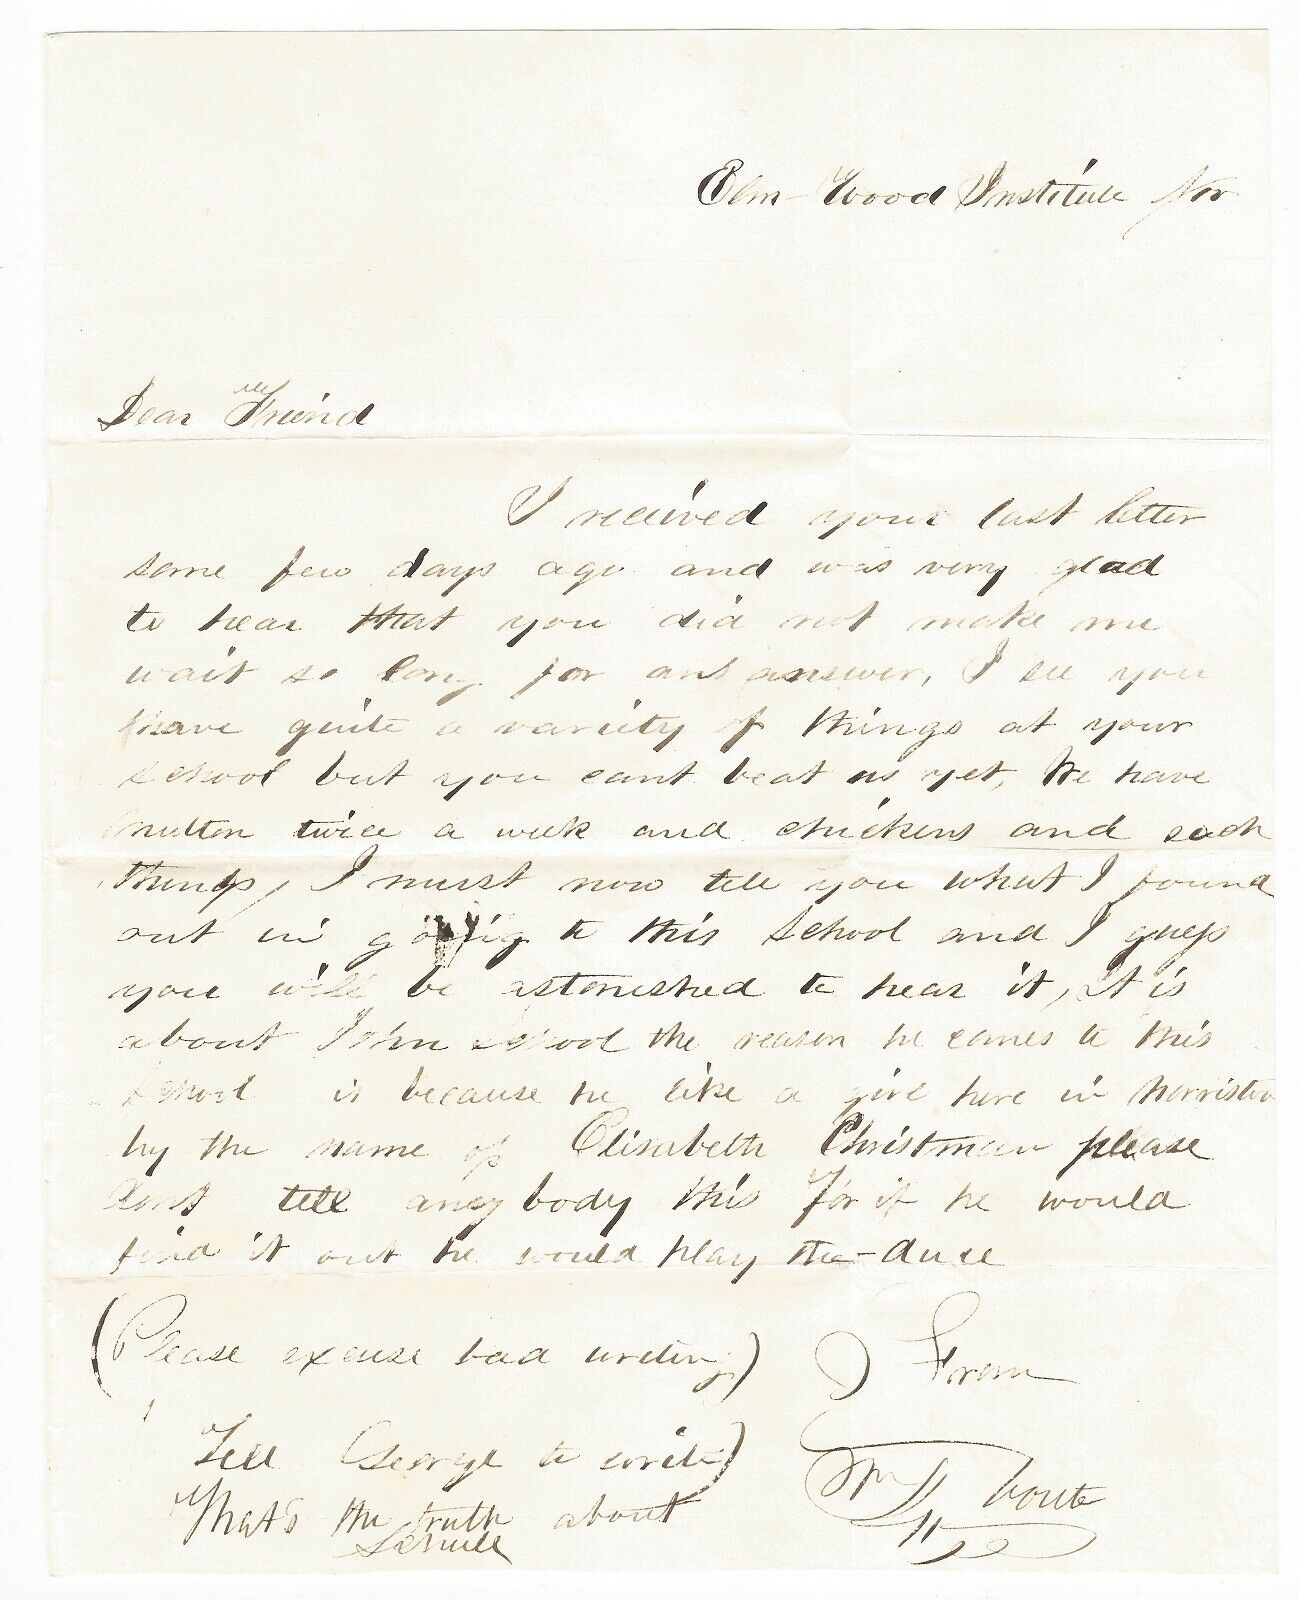 Elm-Wood Institute Nor
Dear Friend
I received your last letter
some few days ago and was very glad
to hear that you did not make me
wait so long for ans answer, I see you
have quite a variety of things at your
school but you cant beat us yet, We have
mutton twice a week and chickens and such
things, I must now tell you what I found
out in going to this School and I guess
you will be astonished to hear it, it is
about John the reason he comes to this
School is because he like a girl here in Norristow
by the name of Elisabeth Christman please
dont tell any body this for if he would
find it out he would play the-duce
(Please excuse bad writing)
From
Tell George to write)
That's the truth about
Wm